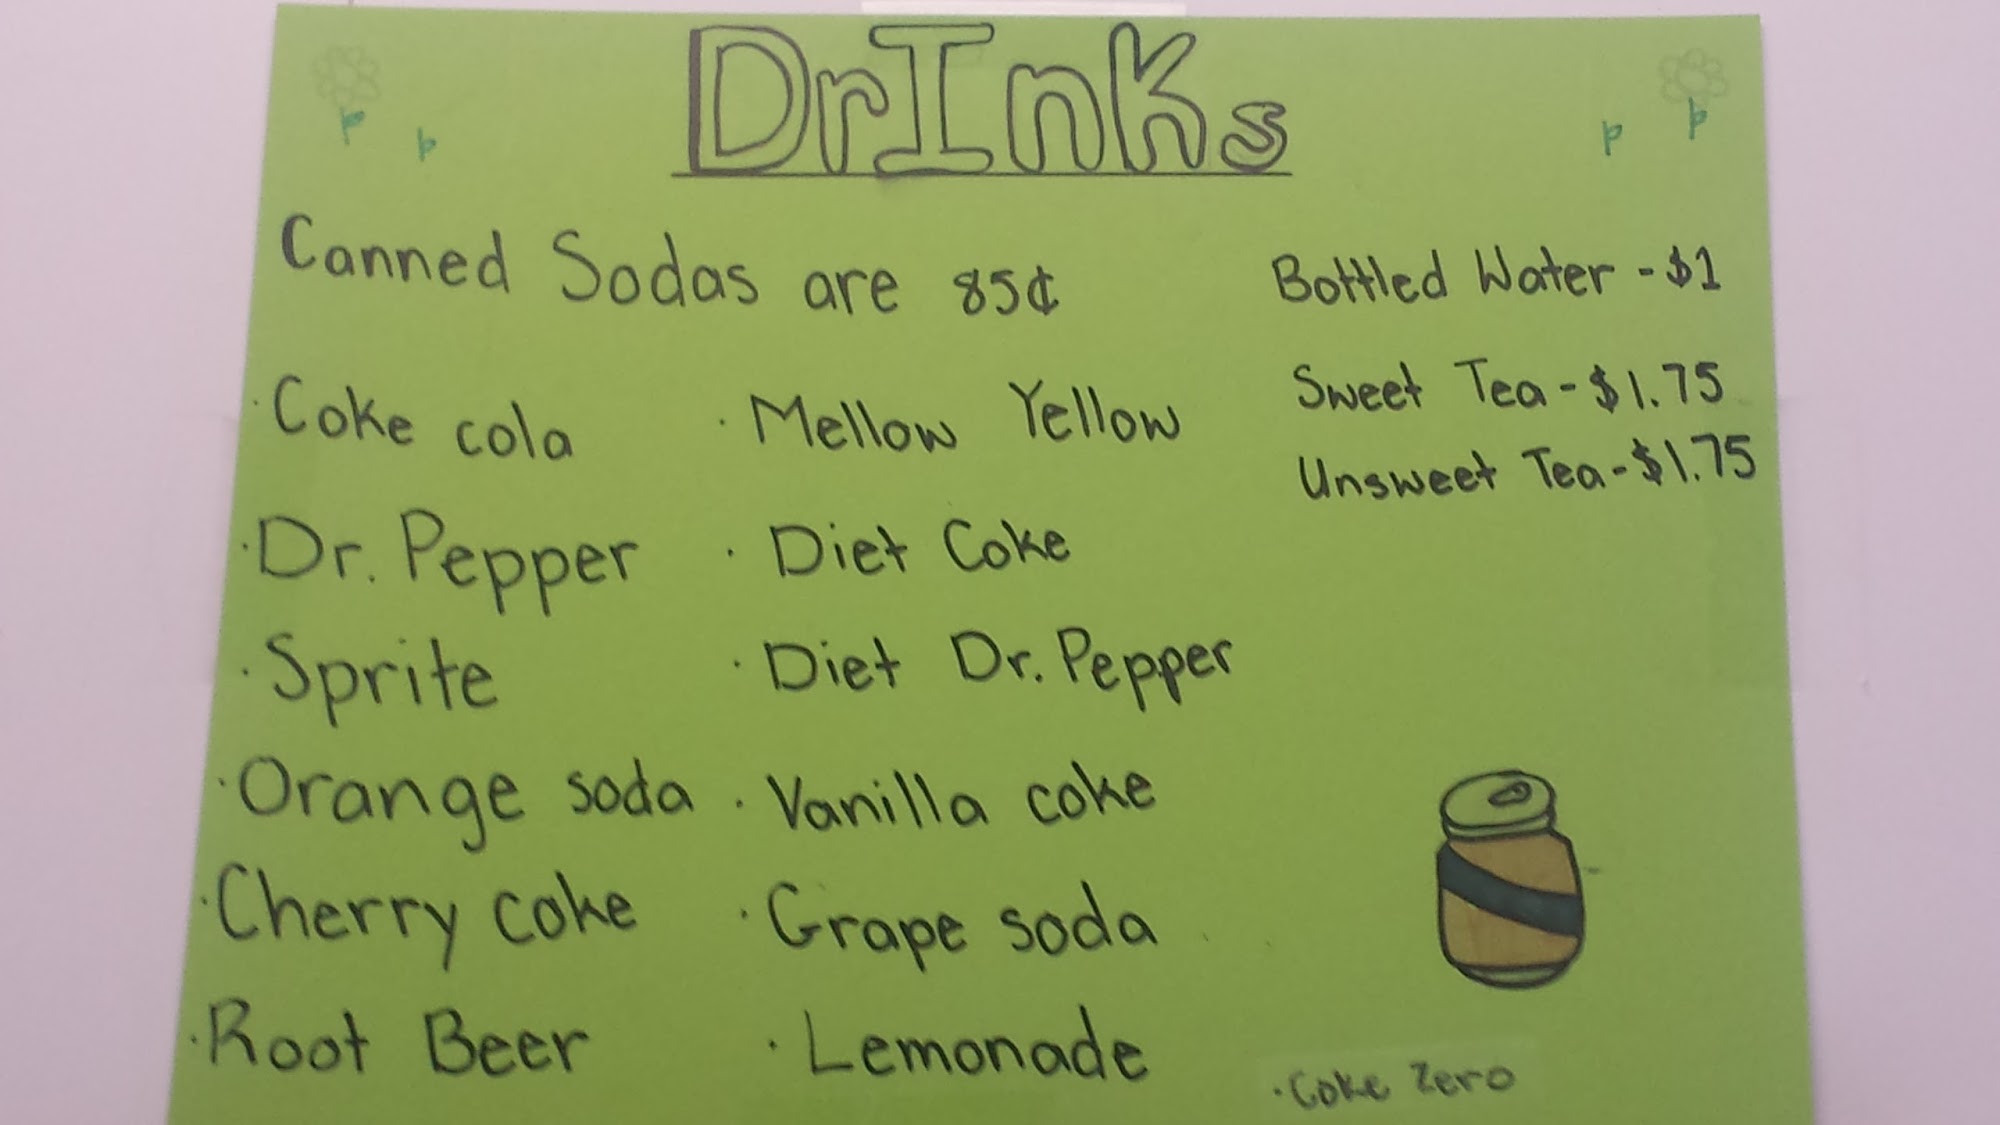 DrInKs
Canned Sodas are 85¢
· Coke cola
· Dr. Pepper
· Sprite
· Orange soda
· Cherry coke
· Root Beer
· Mellow Yellow
· Diet Coke
· Diet Dr. Pepper
· Vanilla coke
· Grape soda
· Lemonade
Bottled Water - $1
Sweet Tea - $1.75
Unsweet Tea - $1.75
· Coke Zero